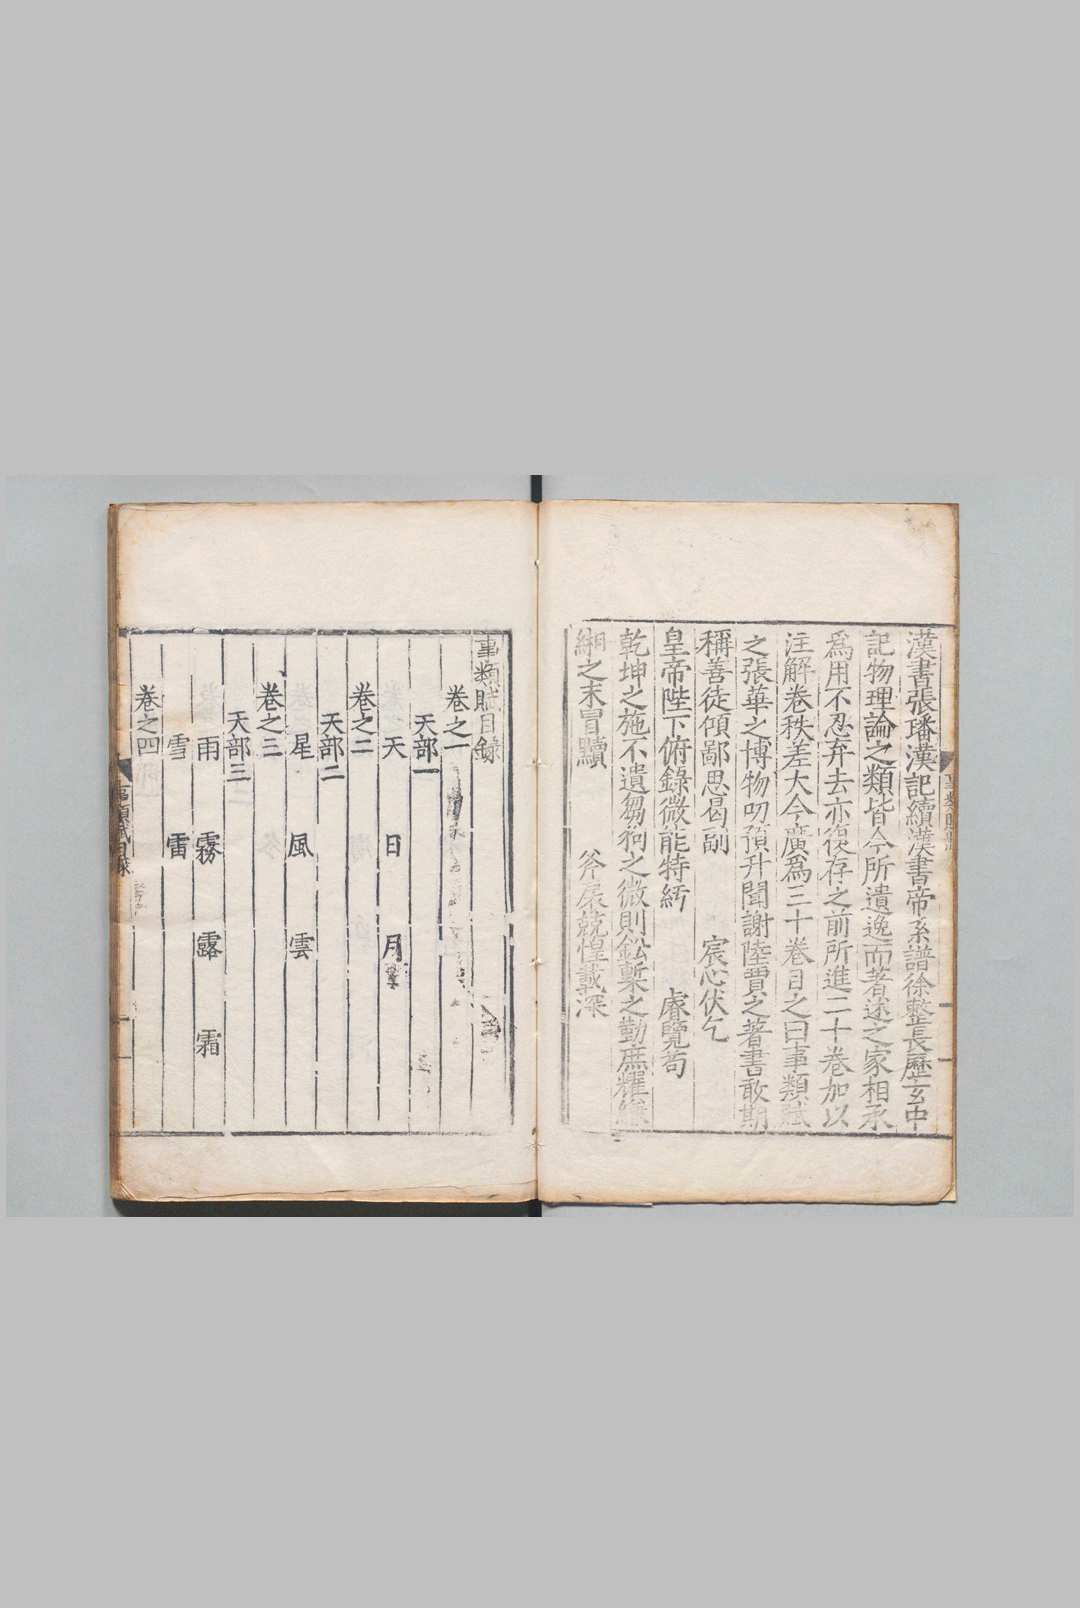 漢書張璠漢記續漢書帝系譜徐整長歷玄中
記物理論之類皆今所遺逸而著述之家相承
爲用不忍弃去亦復存之前所進二十卷加以
注解卷秩差大今廣爲三十卷目之曰事類賦
之張華之博物叨預升聞謝陸賈之著書敢期
稱善徒傾鄙思曷副 宸心伏乞
皇帝陛下俯錄微能特紆 睿覽苟
乾坤之施不遺芻狗之微則鈆槧之勤庶耀緣
緗之末冒黷 斧扆兢惶載深
事類賦目錄
卷之一
天部一
天 日 月
卷之二
天部二
星 風 雲
卷之三
天部三
雨 霧 露 霜
雪 雷
卷之四
事類賦目錄